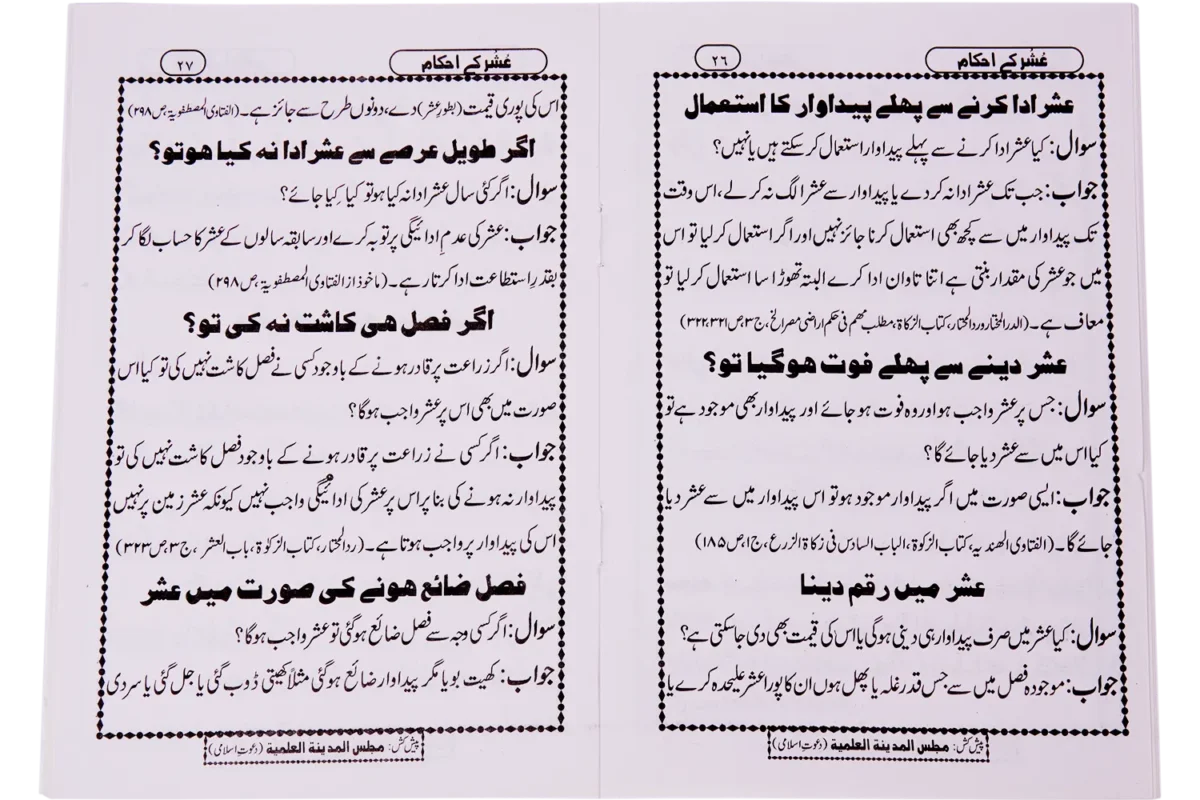 عشر کے احکام
۲۶
عشر ادا کرنے سے پہلے پیداوار کا استعمال
سوال: کیا عشر ادا کرنے سے پہلے پیداوار استعمال کر سکتے ہیں یا نہیں؟
جواب: جب تک عشر ادا نہ کر دے یا پیداوار سے عشر الگ نہ کر لے، اس وقت
تک پیداوار میں سے کچھ بھی استعمال کرنا جائز نہیں اور اگر استعمال کر لیا تو اس
میں جو عشر کی مقدار بنتی ہے اتنا تاوان ادا کرے البتہ تھوڑا سا استعمال کر لیا تو
معاف ہے۔ (الدرالمختار وردالمختار، کتاب الزکاۃ، مطلب مھم فی حکم اراضی مصر الخ، ج۳، ص۳۲۱،۳۲۲)
عشر دینے سے پہلے فوت ہوگیا تو؟
سوال: جس پر عشر واجب ہو اور وہ فوت ہو جائے اور پیداوار بھی موجود ہے تو
کیا اس میں سے عشر دیا جائے گا؟
جواب: ایسی صورت میں اگر پیداوار موجود ہو تو اس پیداوار میں سے عشر دیا
جائے گا۔ (الفتاوی الھندیہ، کتاب الزکوۃ، الباب السادس فی زکاۃ الزرع، ج۱، ص۱۸۵)
عشر میں رقم دینا
سوال: کیا عشر میں صرف پیداوار ہی دینی ہوگی یا اس کی قیمت بھی دی جاسکتی ہے؟
جواب: موجودہ فصل میں سے جس قدر غلہ یا پھل ہوں ان کا پورا عشر علیحدہ کرے یا
پیش کش: مجلس المدینۃ العلمیۃ (دعوتِ اسلامی)
عشر کے احکام
۲۷
اس کی پوری قیمت (بطورِ عشر) دے، دونوں طرح سے جائز ہے۔ (الفتاوی المصطفویۃ، ص۲۹۸)
اگر طویل عرصے سے عشر ادا نہ کیا ہو تو؟
سوال: اگر کئی سال عشر ادا نہ کیا ہو تو کیا کِیا جائے؟
جواب: عشر کی عدمِ ادائیگی پر توبہ کرے اور سابقہ سالوں کے عشر کا حساب لگا کر
بقدرِ استطاعت ادا کرتا رہے۔ (ماخوذ از الفتاوی المصطفویۃ، ص۲۹۸)
اگر فصل ہی کاشت نہ کی تو؟
سوال: اگر زراعت پر قادر ہونے کے باوجود کسی نے فصل کاشت نہیں کی تو کیا اس
صورت میں بھی اس پر عشر واجب ہوگا؟
جواب: اگر کسی نے زراعت پر قادر ہونے کے باوجود فصل کاشت نہیں کی تو
پیداوار نہ ہونے کی بنا پر اس پر عشر کی ادائیگی واجب نہیں کیونکہ عشر زمین پر نہیں
اس کی پیداوار پر واجب ہوتا ہے۔ (ردالمختار، کتاب الزکوۃ، باب العشر، ج۳، ص۳۲۳)
فصل ضائع ہونے کی صورت میں عشر
سوال: اگر کسی وجہ سے فصل ضائع ہوگئی تو عشر واجب ہوگا؟
جواب: کھیت بویا مگر پیداوار ضائع ہوگئی مثلاً کھیتی ڈوب گئی یا جل گئی یا سردی
پیش کش: مجلس المدینۃ العلمیۃ (دعوتِ اسلامی)